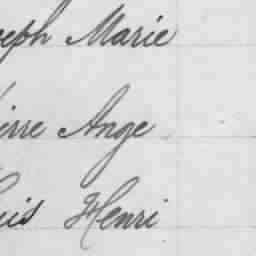 eph Marie
ierre Ange
uis Henri